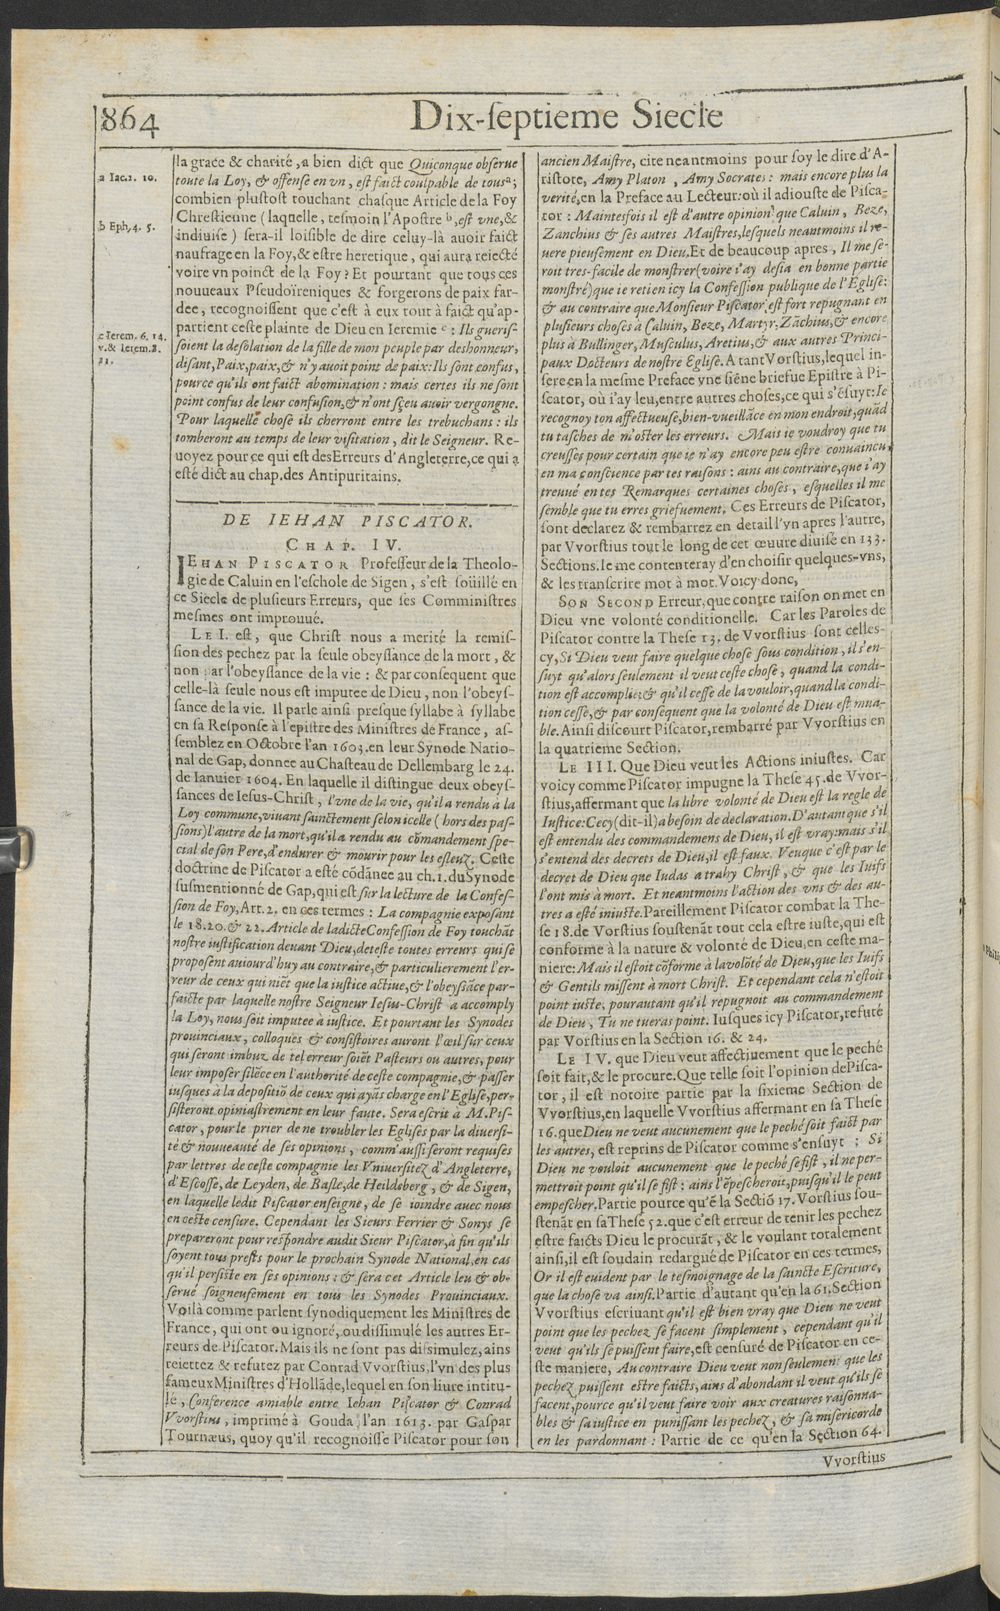 864
Dix-ſeptieme Siecle
a Iac. 2. 10.
b Eph. 4. 5.
c Ierem. 6. 14.
v. & Ierem. 8.
11.
la grace & charité, a bien dict que Quiconque obſerue
toute la Loy, & offenſe en vn, eſt faict coulpable de tous a;
combien pluſtoſt touchant chaſque Article de la Foy
Chreſtienne (laquelle, teſmoin l'Apoſtre b, eſt vne, &
indiuiſe) ſera-il loiſible de dire celuy-là auoir faict
naufrage en la Foy, & eſtre heretique, qui aura reiecté
voire vn poinct de la Foy? Et pourtant que tous ces
nouueaux Pſeudoïreniques & forgerons de paix far-
dee, recognoiſſent que c'eſt à eux tout à faict qu'ap-
partient ceſte plainte de Dieu en Ieremie c: Ils gueriſ-
ſoient la deſolation de la fille de mon peuple par deshonneur,
diſant, Paix, paix, & n'y auoit point de paix: Ils ſont confus,
pource qu'ils ont faict abomination: mais certes ils ne ſont
point confus de leur confuſion, & n'ont ſçeu auoir vergongne.
Pour laquelle choſe ils cherront entre les trebuchans: ils
tomberont au temps de leur viſitation, dit le Seigneur. Re-
uoyez pour ce qui eſt des Erreurs d'Angleterre, ce qui a
eſté dict au chap. des Antipuritains.
DE IEHAN PISCATOR.
CHAP. IV.
IEHAN PISCATOR Profeſſeur de la Theolo-
gie de Caluin en l'eſchole de Sigen, s'eſt ſoüillé en
ce Siecle de pluſieurs Erreurs, que ſes Comminiſtres
meſmes ont improuué.
LE I. eſt, que Chriſt nous a merité la remiſ-
ſion des pechez par la ſeule obeyſſance de la mort, &
non par l'obeyſſance de la vie: & par conſequent que
celle-là ſeule nous eſt imputee de Dieu, non l'obeyſ-
ſance de la vie. Il parle ainſi preſque ſyllabe à ſyllabe
en ſa Reſponſe à l'epiſtre des Miniſtres de France, aſ-
ſemblez en Octobre l'an 1603. en leur Synode Natio-
nal de Gap, donnee au Chaſteau de Dellembarg le 24.
de Ianuier 1604. En laquelle il diſtingue deux obeyſ-
ſances de Ieſus-Chriſt, l'vne de la vie, qu'il a rendu à la
Loy commune, viuant ſainctement ſelon icelle (hors des paſ-
ſions) l'autre de la mort, qu'il a rendu au cõmandement ſpe-
cial de ſon Pere, d'endurer & mourir pour les eſleuz. Ceſte
doctrine de Piſcator a eſté cõdãnee au ch. 1. du Synode
ſuſmentionné de Gap, qui eſt ſur la lecture de la Confeſ-
ſion de Foy, Art. 2. en ces termes: La compagnie expoſant
le 18. 20. & 22. Article de ladicte Confeſſion de Foy touchãt
noſtre iuſtification deuant Dieu, deteſte toutes erreurs qui ſe
propoſent auiourd'huy au contraire, & particulierement l'er-
reur de ceux qui niẽt que la iuſtice actiue, & l'obeyſſãce par-
faicte par laquelle noſtre Seigneur Ieſus-Chriſt a accomply
la Loy, nous ſoit imputee à iuſtice. Et pourtant les Synodes
prouinciaux, colloques & conſiſtoires auront l'œil ſur ceux
qui ſeront imbuz de tel erreur ſoiẽt Paſteurs ou autres, pour
leur impoſer ſilẽce en l'authorité de ceſte compagnie, & paſſer
iuſques à la depoſitiõ de ceux qui ayãs charge en l'Egliſe, per-
ſiſteront opiniaſtrement en leur faute. Sera eſcrit à M. Piſ-
cator, pour le prier de ne troubler les Egliſes par la diuerſi-
té & nouueauté de ſes opinions, comm'auſſi ſeront requiſes
par lettres de ceſte compagnie les Vniuerſitez d'Angleterre,
d'Eſcoſſe, de Leyden, de Baſle, de Heildeberg, & de Sigen,
en laquelle ledit Piſcator enſeigne, de ſe ioindre auec nous
en ceſte cenſure. Cependant les Sieurs Ferrier & Sonys ſe
prepareront pour reſpondre audit Sieur Piſcator, à fin qu'ils
ſoyent tous preſts pour le prochain Synode National, en cas
qu'il perſiſte en ſes opinions: & ſera cet Article leu & ob-
ſerué ſoigneuſement en tous les Synodes Prouinciaux.
Voilà comme parlent ſynodiquement les Miniſtres de
France, qui ont ou ignoré, ou diſſimulé les autres Er-
reurs de Piſcator. Mais ils ne ſont pas diſſimulez, ains
reiettez & refutez par Conrad Vvorſtius, l'vn des plus
fameux Miniſtres d'Hollãde, lequel en ſon liure intitu-
lé, Conference amiable entre Iehan Piſcator & Conrad
Vvorſtius, imprimé à Gouda, l'an 1613. par Gaſpar
Tournæus, quoy qu'il recognoiſſe Piſcator pour ſon
ancien Maiſtre, cite neantmoins pour ſoy le dire d'A-
riſtote, Amy Platon, Amy Socrates: mais encore plus la
verité, en la Preface au Lecteur: où il adiouſte de Piſca-
tor: Maintesfois il eſt d'autre opinion que Caluin, Beze,
Zanchius & ſes autres Maiſtres, leſquels neantmoins il re-
uere pieuſement en Dieu. Et de beaucoup apres, Il me ſe-
roit tres-facile de monſtrer (voire i'ay deſia en bonne partie
monſtré) que ie retien icy la Confeſſion publique de l'Egliſe:
& au contraire que Monſieur Piſcator eſt fort repugnant en
pluſieurs choſes à Caluin, Beze, Martyr, Zãchius, & encore
plus à Bullinger, Muſculus, Aretius, & aux autres Princi-
paux Docteurs de noſtre Egliſe. A tant Vorſtius, lequel in-
ſere en la meſme Preface vne ſiẽne briefue Epiſtre à Pi-
ſcator, où i'ay leu, entre autres choſes, ce qui s'ẽſuyt: Ie
recognoy ton affectueuſe, bien-vueillãce en mon endroit, quãd
tu taſches de m'oſter les erreurs. Mais ie voudroy que tu
creuſſes pour certain que ie n'ay encore peu eſtre conuaincu
en ma conſcience par tes raiſons: ains au contraire, que i'ay
treuué en tes Remarques certaines choſes, eſquelles il me
ſemble que tu erres griefuement. Ces Erreurs de Piſcator,
ſont declarez & rembarrez en detail l'vn apres l'autre,
par Vvorſtius tout le long de cet œuure diuiſé en 133.
Sections. Ie me contenteray d'en choiſir quelques-vns,
& les tranſcrire mot à mot. Voicy donc,
SON SECOND Erreur, que contre raiſon on met en
Dieu vne volonté conditionelle. Car les Paroles de
Piſcator contre la Theſe 13. de Vvorſtius ſont celles-
cy, Si Dieu veut faire quelque choſe ſous condition, il s'en-
ſuyt qu'alors ſeulement il veut ceſte choſe, quand la condi-
tion eſt accomplie: & qu'il ceſſe de la vouloir, quand la condi-
tion ceſſe, & par conſequent que la volonté de Dieu eſt mua-
ble. Ainſi diſcourt Piſcator, rembarré par Vvorſtius en
la quatrieme Section.
LE III. Que Dieu veut les Actions iniuſtes. Car
voicy comme Piſcator impugne la Theſe 45. de Vvor-
ſtius, affermant que la libre volonté de Dieu eſt la regle de
Iuſtice: Cecy (dit-il) a beſoin de declaration. D'autant que s'il
eſt entendu des commandemens de Dieu, il eſt vray: mais s'il
s'entend des decrets de Dieu, il eſt faux. Veu que c'eſt par le
decret de Dieu que Iudas a trahy Chriſt, & que les Iuifs
l'ont mis à mort. Et neantmoins l'action des vns & des au-
tres a eſté iniuſte. Pareillement Piſcator combat la The-
ſe 18. de Vorſtius ſouſtenãt tout cela eſtre iuſte, qui eſt
conforme à la nature & volonté de Dieu, en ceſte ma-
niere: Mais il eſtoit cõforme à la volõté de Dieu, que les Iuifs
& Gentils miſſent à mort Chriſt. Et cependant cela n'eſtoit
point iuſte, pourautant qu'il repugnoit au commandement
de Dieu, Tu ne tueras point. Iuſques icy Piſcator, refuté
par Vorſtius en la Section 16. & 24.
LE IV. que Dieu veut affectiuement que le peché
ſoit fait, & le procure. Que telle ſoit l'opinion de Piſca-
tor, il eſt notoire partie par la ſixieme Section de
Vvorſtius, en laquelle Vvorſtius affermant en ſa Theſe
16. que Dieu ne veut aucunement que le peché ſoit faict par
les autres, eſt reprins de Piſcator comme s'enſuyt; Si
Dieu ne vouloit aucunement que le peché ſe fiſt, il ne per-
mettroit point qu'il ſe fiſt: ains l'ẽpeſcheroit, puiſqu'il le peut
empeſcher. Partie pource qu'ẽ la Sectiõ 17. Vorſtius ſou-
ſtenãt en ſa Theſe 52. que c'eſt erreur de tenir les pechez
eſtre faicts Dieu le procurãt, & le voulant totalement
ainſi, il eſt ſoudain redargué de Piſcator en ces termes,
Or il eſt euident par le teſmoignage de la ſaincte Eſcriture,
que la choſe va ainſi. Partie d'autant qu'en la 61. Section
Vvorſtius eſcriuant qu'il eſt bien vray que Dieu ne veut
point que les pechez ſe facent ſimplement, cependant qu'il
veut qu'ils ſe puiſſent faire, eſt cenſuré de Piſcator en ce-
ſte maniere, Au contraire Dieu veut non ſeulement que les
pechez puiſſent eſtre faicts, ains d'abondant il veut qu'ils ſe
facent, pource qu'il veut faire voir aux creatures raiſonna-
bles & ſa iuſtice en puniſſant les pechez, & ſa miſericorde
en les pardonnant: Partie de ce qu'en la Section 64.
Vvorſtius